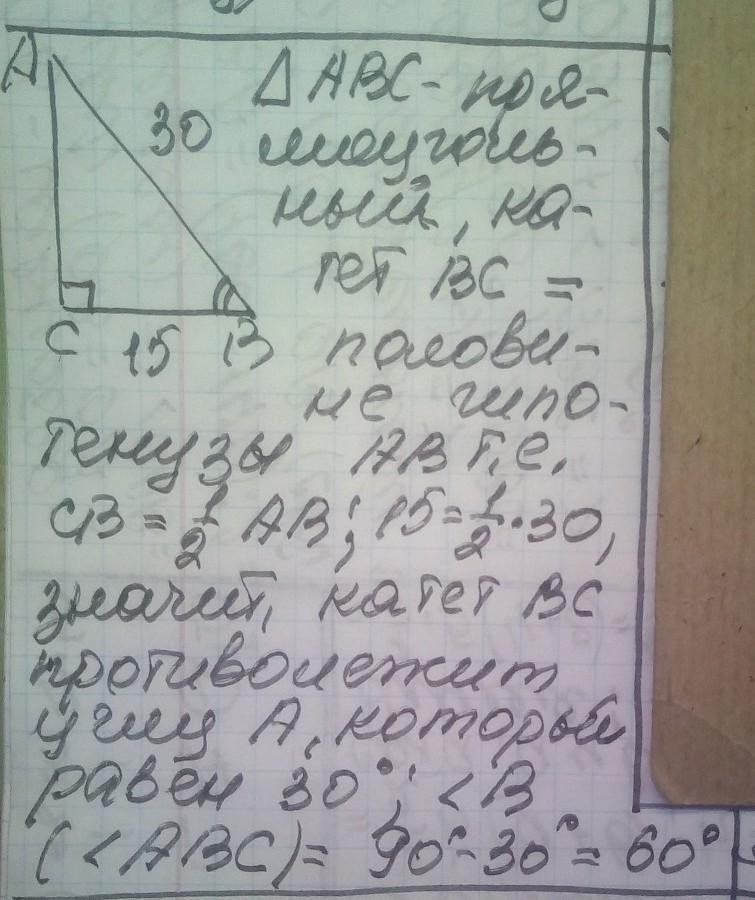 A
30
С 15 В
△ АВС - пря-
моуголь-
ный, ка-
тет ВС =
полови-
не гипо-
тенузы АВ т.е.
СВ = 1/2 АВ; 15 = 1/2 · 30,
значит, катет ВС
противолежит
углу А, который
равен 30°; <В
(<АВС) = 90° - 30° = 60°